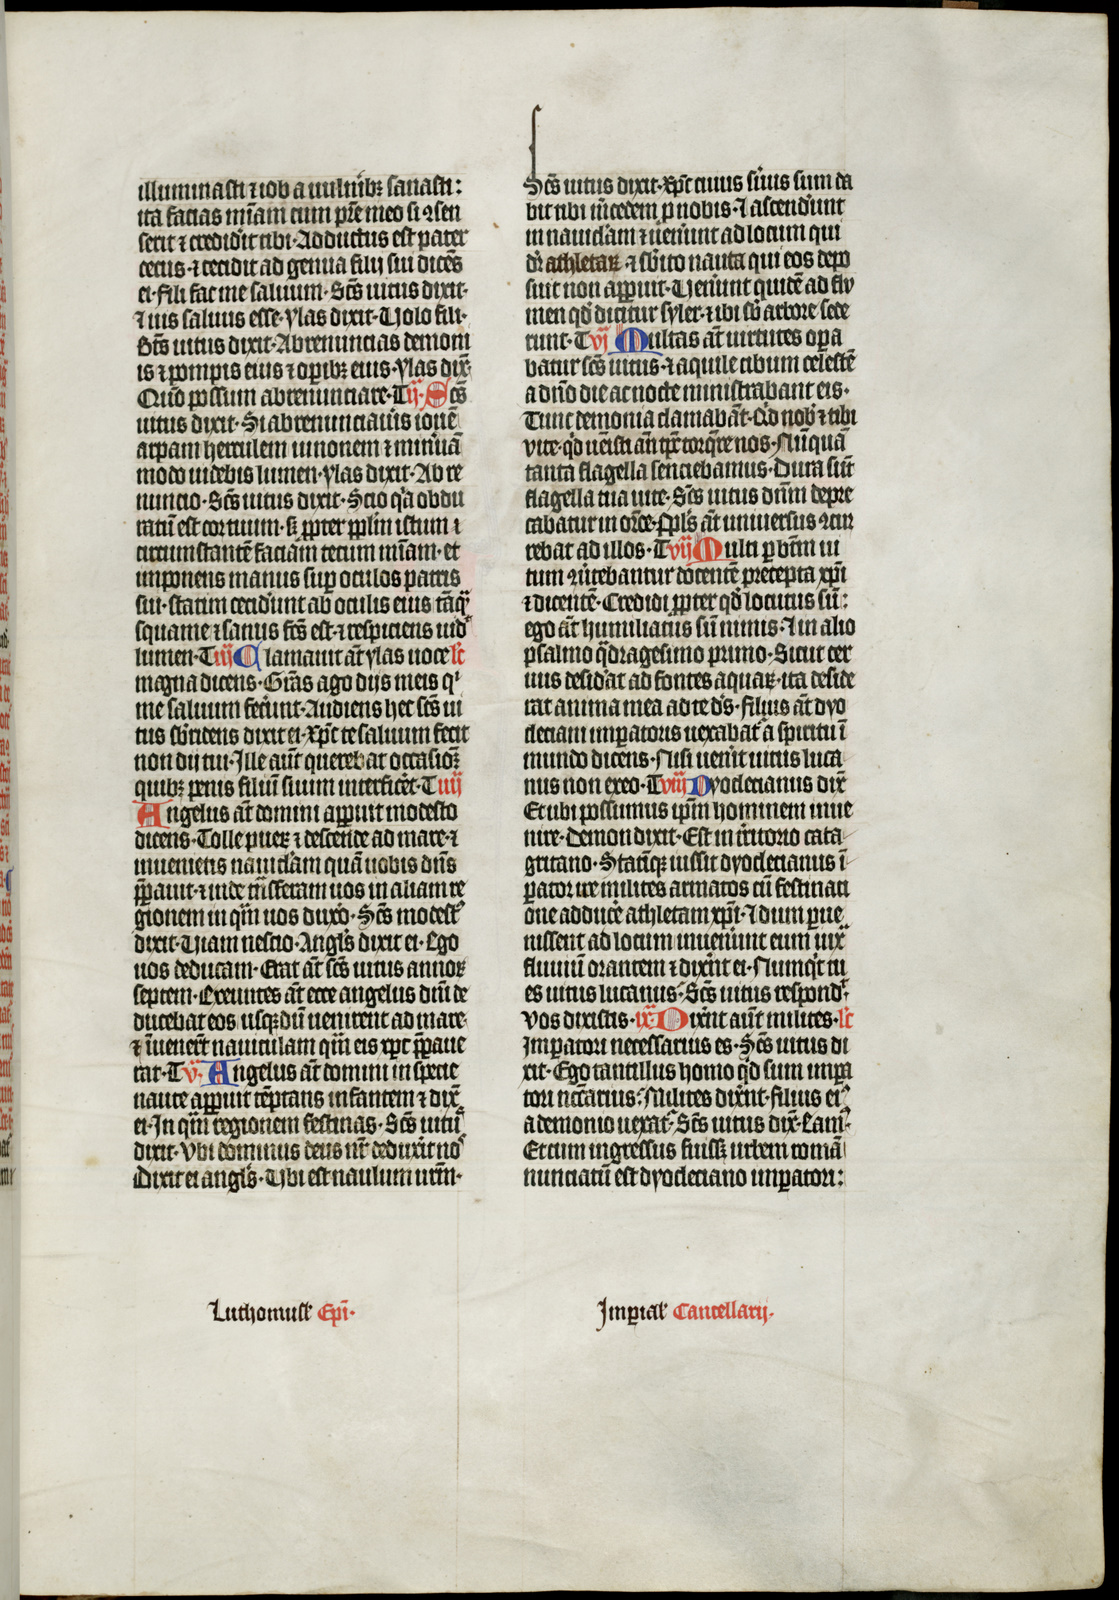 illuminasti ⁊ iob a uulnibꝫ sanasti:
ita facias mīam cum pr̄e meo si ꝯsen
serit ⁊ credidit tibi· Adductus est pater
cecus· ⁊ cecidit ad genua filij sui dicēs
ei· Fili fac me saluum· Scs̄ uitus dixit·
⁊ uis saluus esse· ylas dixit· Uolo fili·
Scs̄ uitus dixit· Abrenuncias demoni
is ⁊ pompis eius ⁊ oꝑibꝫ eius· ylas dix̄·
Quō possum abrenunciare· T ij· Scs̄
uitus dixit· Si abrenunciauis iouē
arpam herculem iunonem ⁊ mineruā
modo uidebis lumen· ylas dixit· Ab re
nuncio· Scs̄ uitus dixit· Scio qa obdu
ratū est cor tuum· sꝫ ꝓpter pplm istum ⁊
circumstantē faciam tecum mīam· et
imponens manus suꝑ oculos patris
sui· statim ceciderunt ab oculis eius tāq̄
squame ⁊ sanus fcs̄ est· ⁊ respiciens uid̄
lumen· T iij Clamauit at̄ ylas uoce lc̄
magna dicens· Grās ago dijs meis qⁱ
me saluum fecerunt· Audiens hec scs̄ ui
tus sbridens dixit ei· xpc̄ te saluum fecit
non dij tui· Ille aut̄ querebat occasioꝫ
quibꝫ penis filiū suum interficēt· T iiij
Angelus at̄ domini apparuit modesto
dicens· Tolle puerꝫ ⁊ descende ad mare· ⁊
inuenietis nauiclam quā uobis dn̄s
p̄parauit· ⁊ inde trāsferam uos in aliam re
gionem in qm̄ uos duxo· Scs̄ modest᷒
dixit· Uiam nescio· Angls̄ dixit ei· Ego
uos deducam· Erat at̄ scs̄ uitus annoꝝ
septem· Exeuntes at̄ ecce angelus dn̄i de
ducebat eos usqꝫ dū uenirent ad mare·
⁊ īuenert̄ nauiculam qm̄ eis xpc̄ p̄paue
rat· T v· Angelus at̄ domini in specie
naute apparuit tēptans infantem ⁊ dix̄
ei· In qm̄ regionem festinas· Scs̄ uitu᷒
dixit· Vbi dominus deus nr̄ deduxit no᷒
Dixit ei angls̄· Ubi est naulum urm̄·
Scs̄ uitus dixit· xpc̄ cuius suus sum da
bit tibi mercedem ꝓ nobis· ⁊ ascenderunt
in nauiclam ⁊ uenerunt ad locum qui
dr̄ athletaꝝ· ⁊ sbito nauta qui eos depo
suit non apparuit· Uenerunt quidē ad flu
men qd̄ dicitur syler· ⁊ ibi sb̄ arbore sede
runt· T vj Multas at̄ uirtutes opa
batur scs̄ uitus· ⁊ aquile cibum celestē
a dn̄o die ac nocte ministrabant eis·
Tunc demonia clamabāt· Qd nob̄ ⁊ tibi
vite· qd uenisti an̄ tp̄r torqre nos· Nūquā
tanta flagella senciebamus· Dura sūt
flagella tua uite· Scs̄ uitus dn̄m depre
cabatur in orōe· Ppls̄ at̄ uniuersus ꝯcur
rebat ad illos· T vij Multi ꝑ btm̄ ui
tum ꝯuertebantur docentē precepta xpi̅
⁊ dicentē· Credidi ꝓpter qd̄ locutus sū:
ego at̄ humiliatus sū nimis· ⁊ in alio
psalmo q̄dragesimo primo· Sicut cer
uus desid̾at ad fontes aquaꝝ· ita deside
rat anima mea ad te ds̄· filius at̄ dyo
cleciani imꝑatoris uexabat᷑ a spiritu ī
mundo dicens· Nisi uenerit uitus luca
nus non exeo· T viij Dyoclecianus dix̄
Et ubi possumus ip̄m hominem inue
nire· Demon dixit· Est in territorio cata
gritano· Statimqꝫ iussit dyoclecianus ī
ꝑator ire milites armatos cū festinati
one adducē athletam xpi̅· ⁊ dum ꝑue
nissent ad locum inuenerunt eum iux̄
fluuiū orantem ⁊ dixert̄ ei· Numqd tu
es uitus lucanus· Scs̄ uitus respond᷑·
Vos dixistis· ix· Dixert̄ aut̄ milites· lc̄
Imperatori necessarius es· Scs̄ uitus di
xit· Ego tantillus homo qd sum impa
tori nccārius· Milites dixert̄· filius ei᷒
a demonio uexat᷑· Scs̄ uitus dix̄· Eam᷒·
Et cum ingressus fuissꝫ urbem romā
nunciatū est dyocleciano imꝑatori:
Luthomuslꝭ Epi̅·
Imꝑialꝭ Cancellarij·